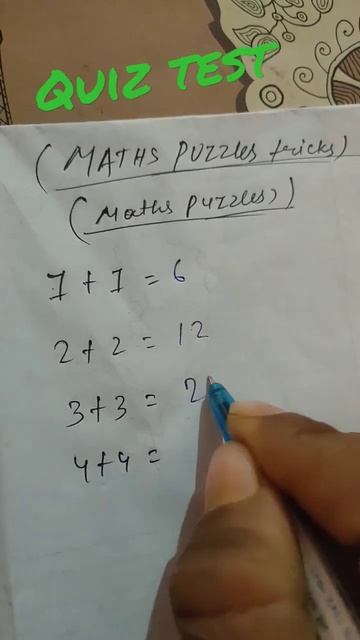 QUIZ TEST
(MATHS PUZZLES tricks)
(Maths Puzzles)
1 + 1 = 6
2 + 2 = 12
3 + 3 = 2
4 + 4 =